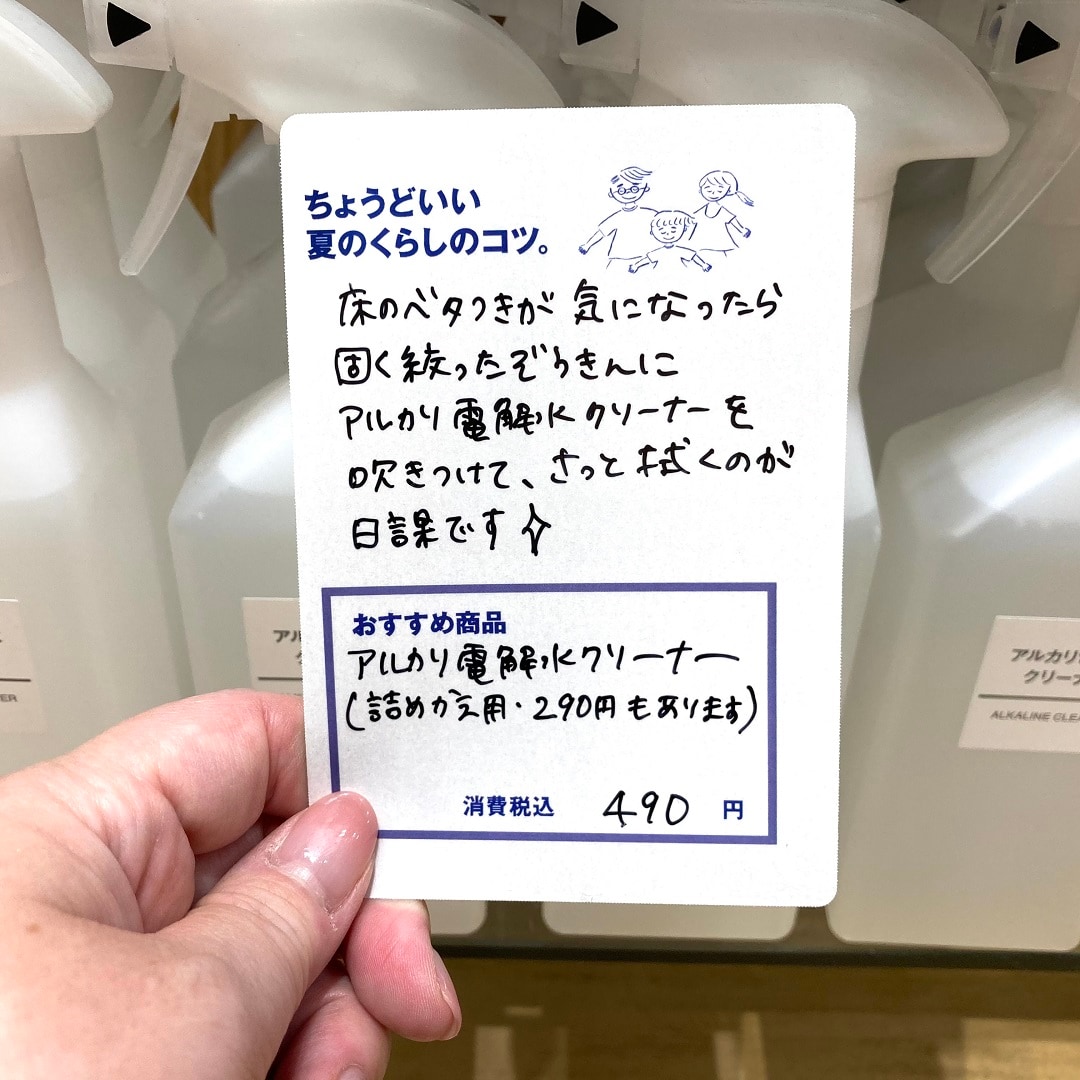 ちょうどいい
夏のくらしのコツ。
床のベタつきが 気になったら
固く絞ったぞうきんに
アルカリ電解水クリーナーを
吹きつけて、さっと拭くのが
日課です
おすすめ商品
アルカリ電解水クリーナー
(詰めかえ用・290円もあります)
消費税込 490 円
アル
ク
アルカリ
クリーナ
ALKALINE CLEA
ER